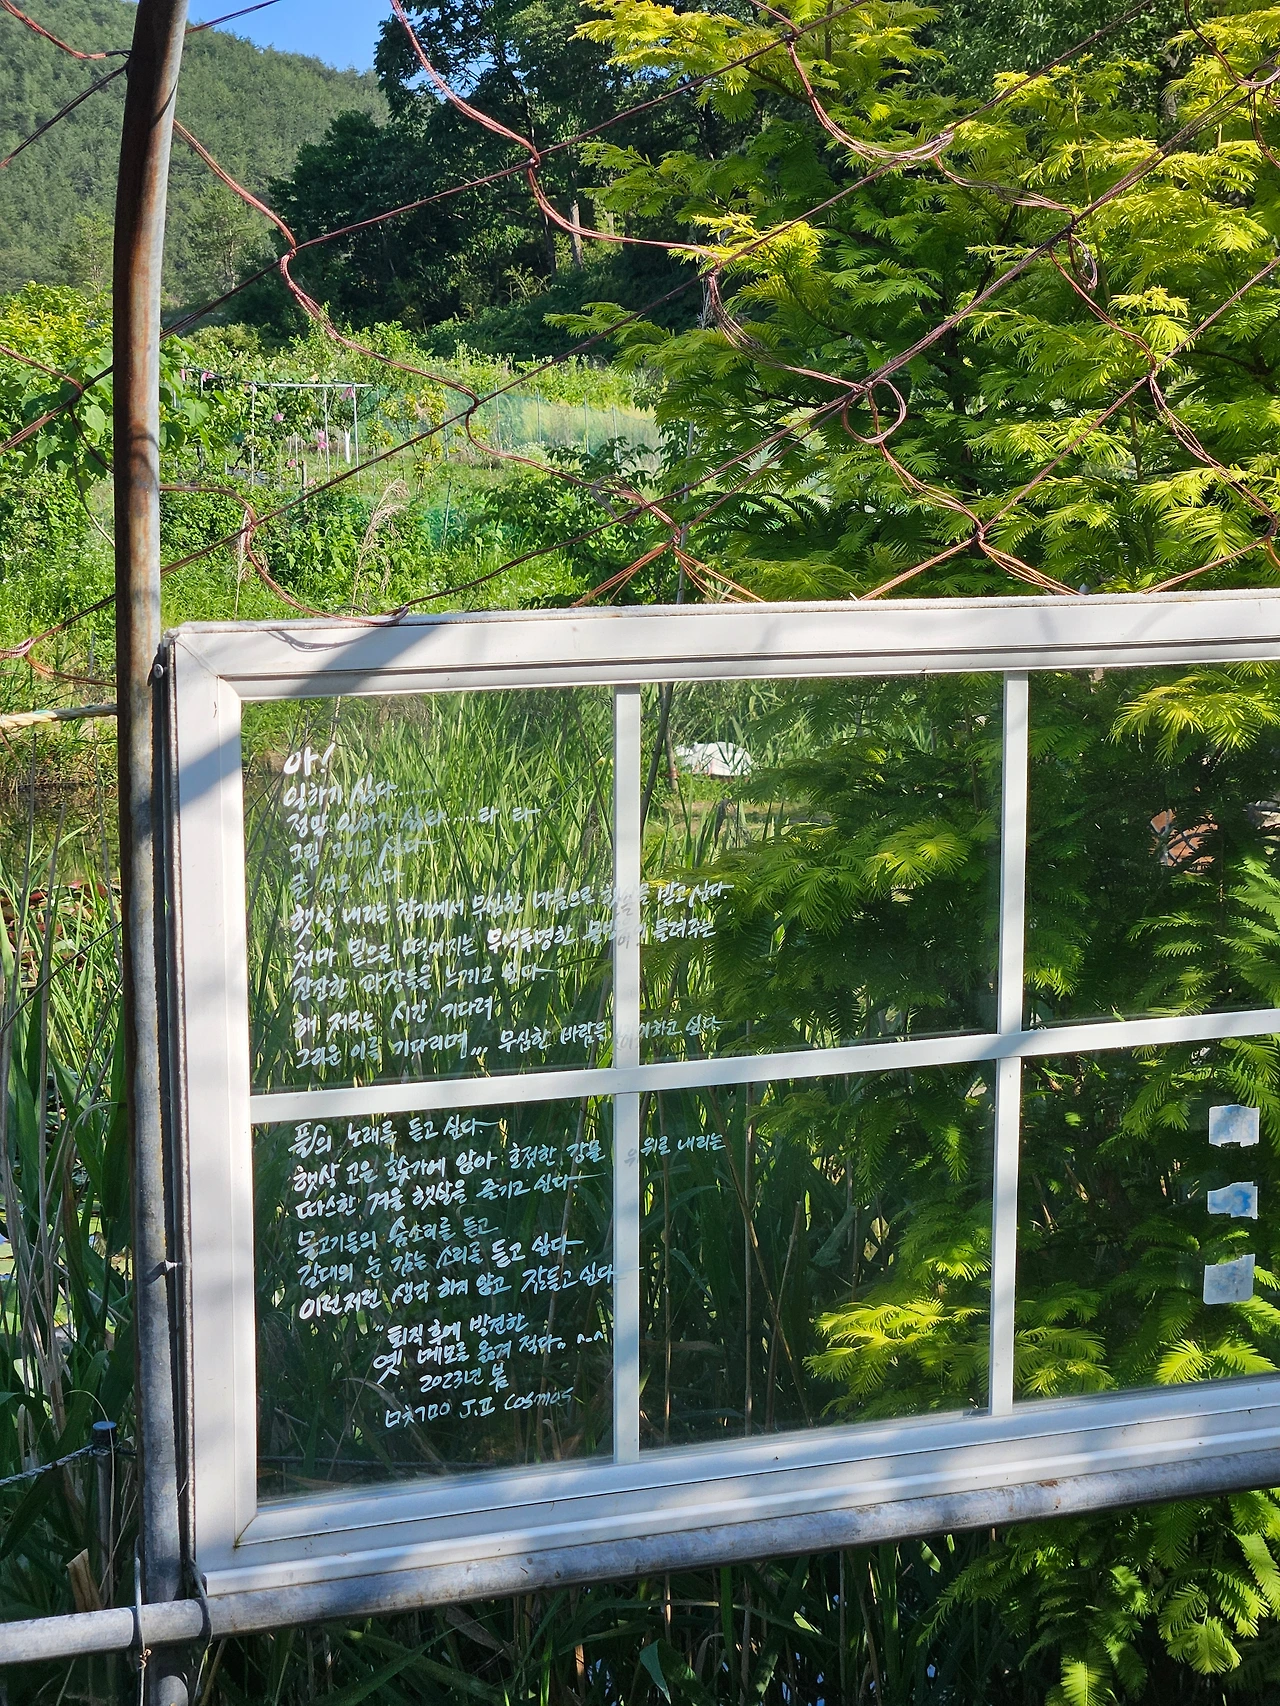 아!
일하기 싫다.....
정말 일하기 싫다....타 타
그림 그리고 싶다
글 쓰고 싶다
햇살 내리는 창가에서 무심한 마음으로 햇살을 받고싶다
처마 밑으로 떨어지는 무색투명한 들려주는
잔잔한 파장들을 느끼고 싶다
해 저무는 시간 기다려
그리운 이를 기다리며... 무심한 바람을 하고 싶다
풀의 노래를 듣고 싶다
햇살 고운 호숫가에 앉아 호젓한 강물 위로 내리는
따스한 겨울 햇살을 즐기고 싶다.
물고기들의 숨소리를 듣고
갈대의 눈 감는 소리를 듣고 싶다
이런저런 생각 하지 않고 잠들고 싶다
"퇴직후에 발견한
옛 메모를 옮겨 적다. ^.^
2023년 봄
J.I COSMOS